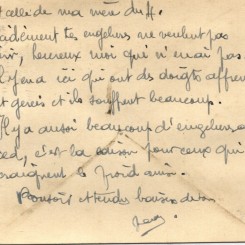 et celle de ma mère du
décidément tes engelures ne veulent pas
, heureux moi qui n'en ai pas
Il y en a ici qui ont des doigts
et gercés et ils souffrent beaucoup.
Il y a aussi beaucoup d'engelures
, c'est la saison pour ceux qui
craignent le froid
Bonsoir et tendres baisers